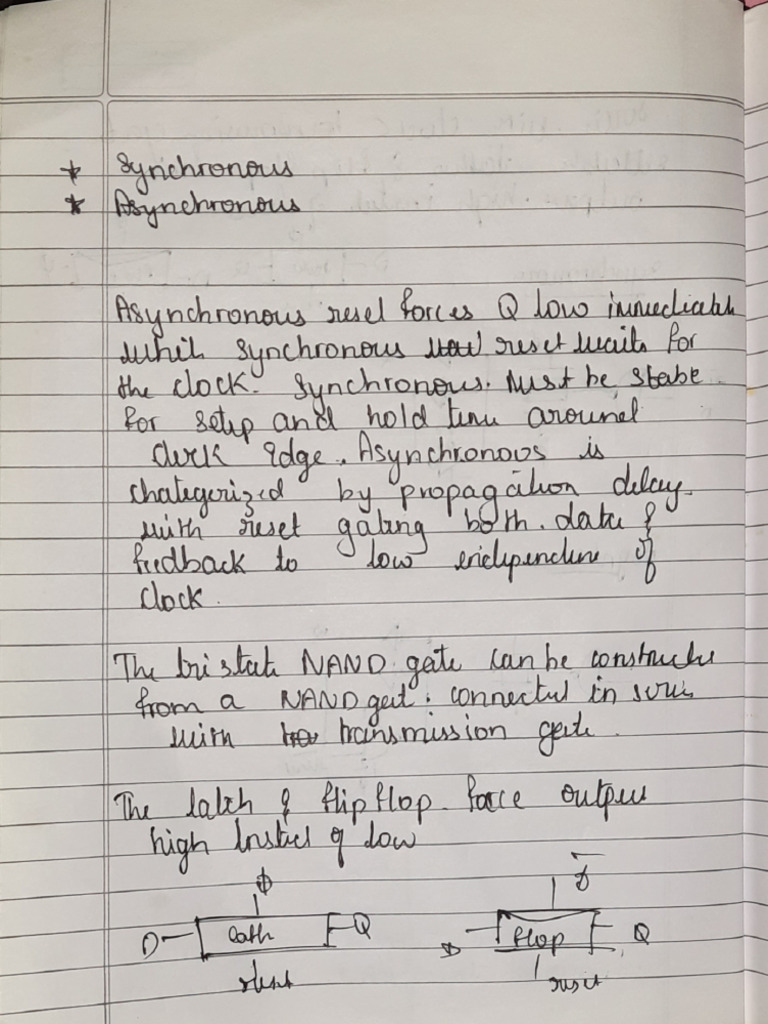 * Synchronous
* Asynchronous
Asynchronous reset forces Q low immediately
while synchronous reset waits for
the clock. Synchronous. Must be stabe
for setup and hold time around
clock edge. Asynchronous is
chategerized by propagation delay
with reset gating both data &
feedback to low independence of
clock.
The tri state NAND gate can be constructe
from a NAND gate connected in series
with transmission gate.
The latch & flip flop force output
high insted of low
ϕ
D latch Q
reset
flop Q
reset